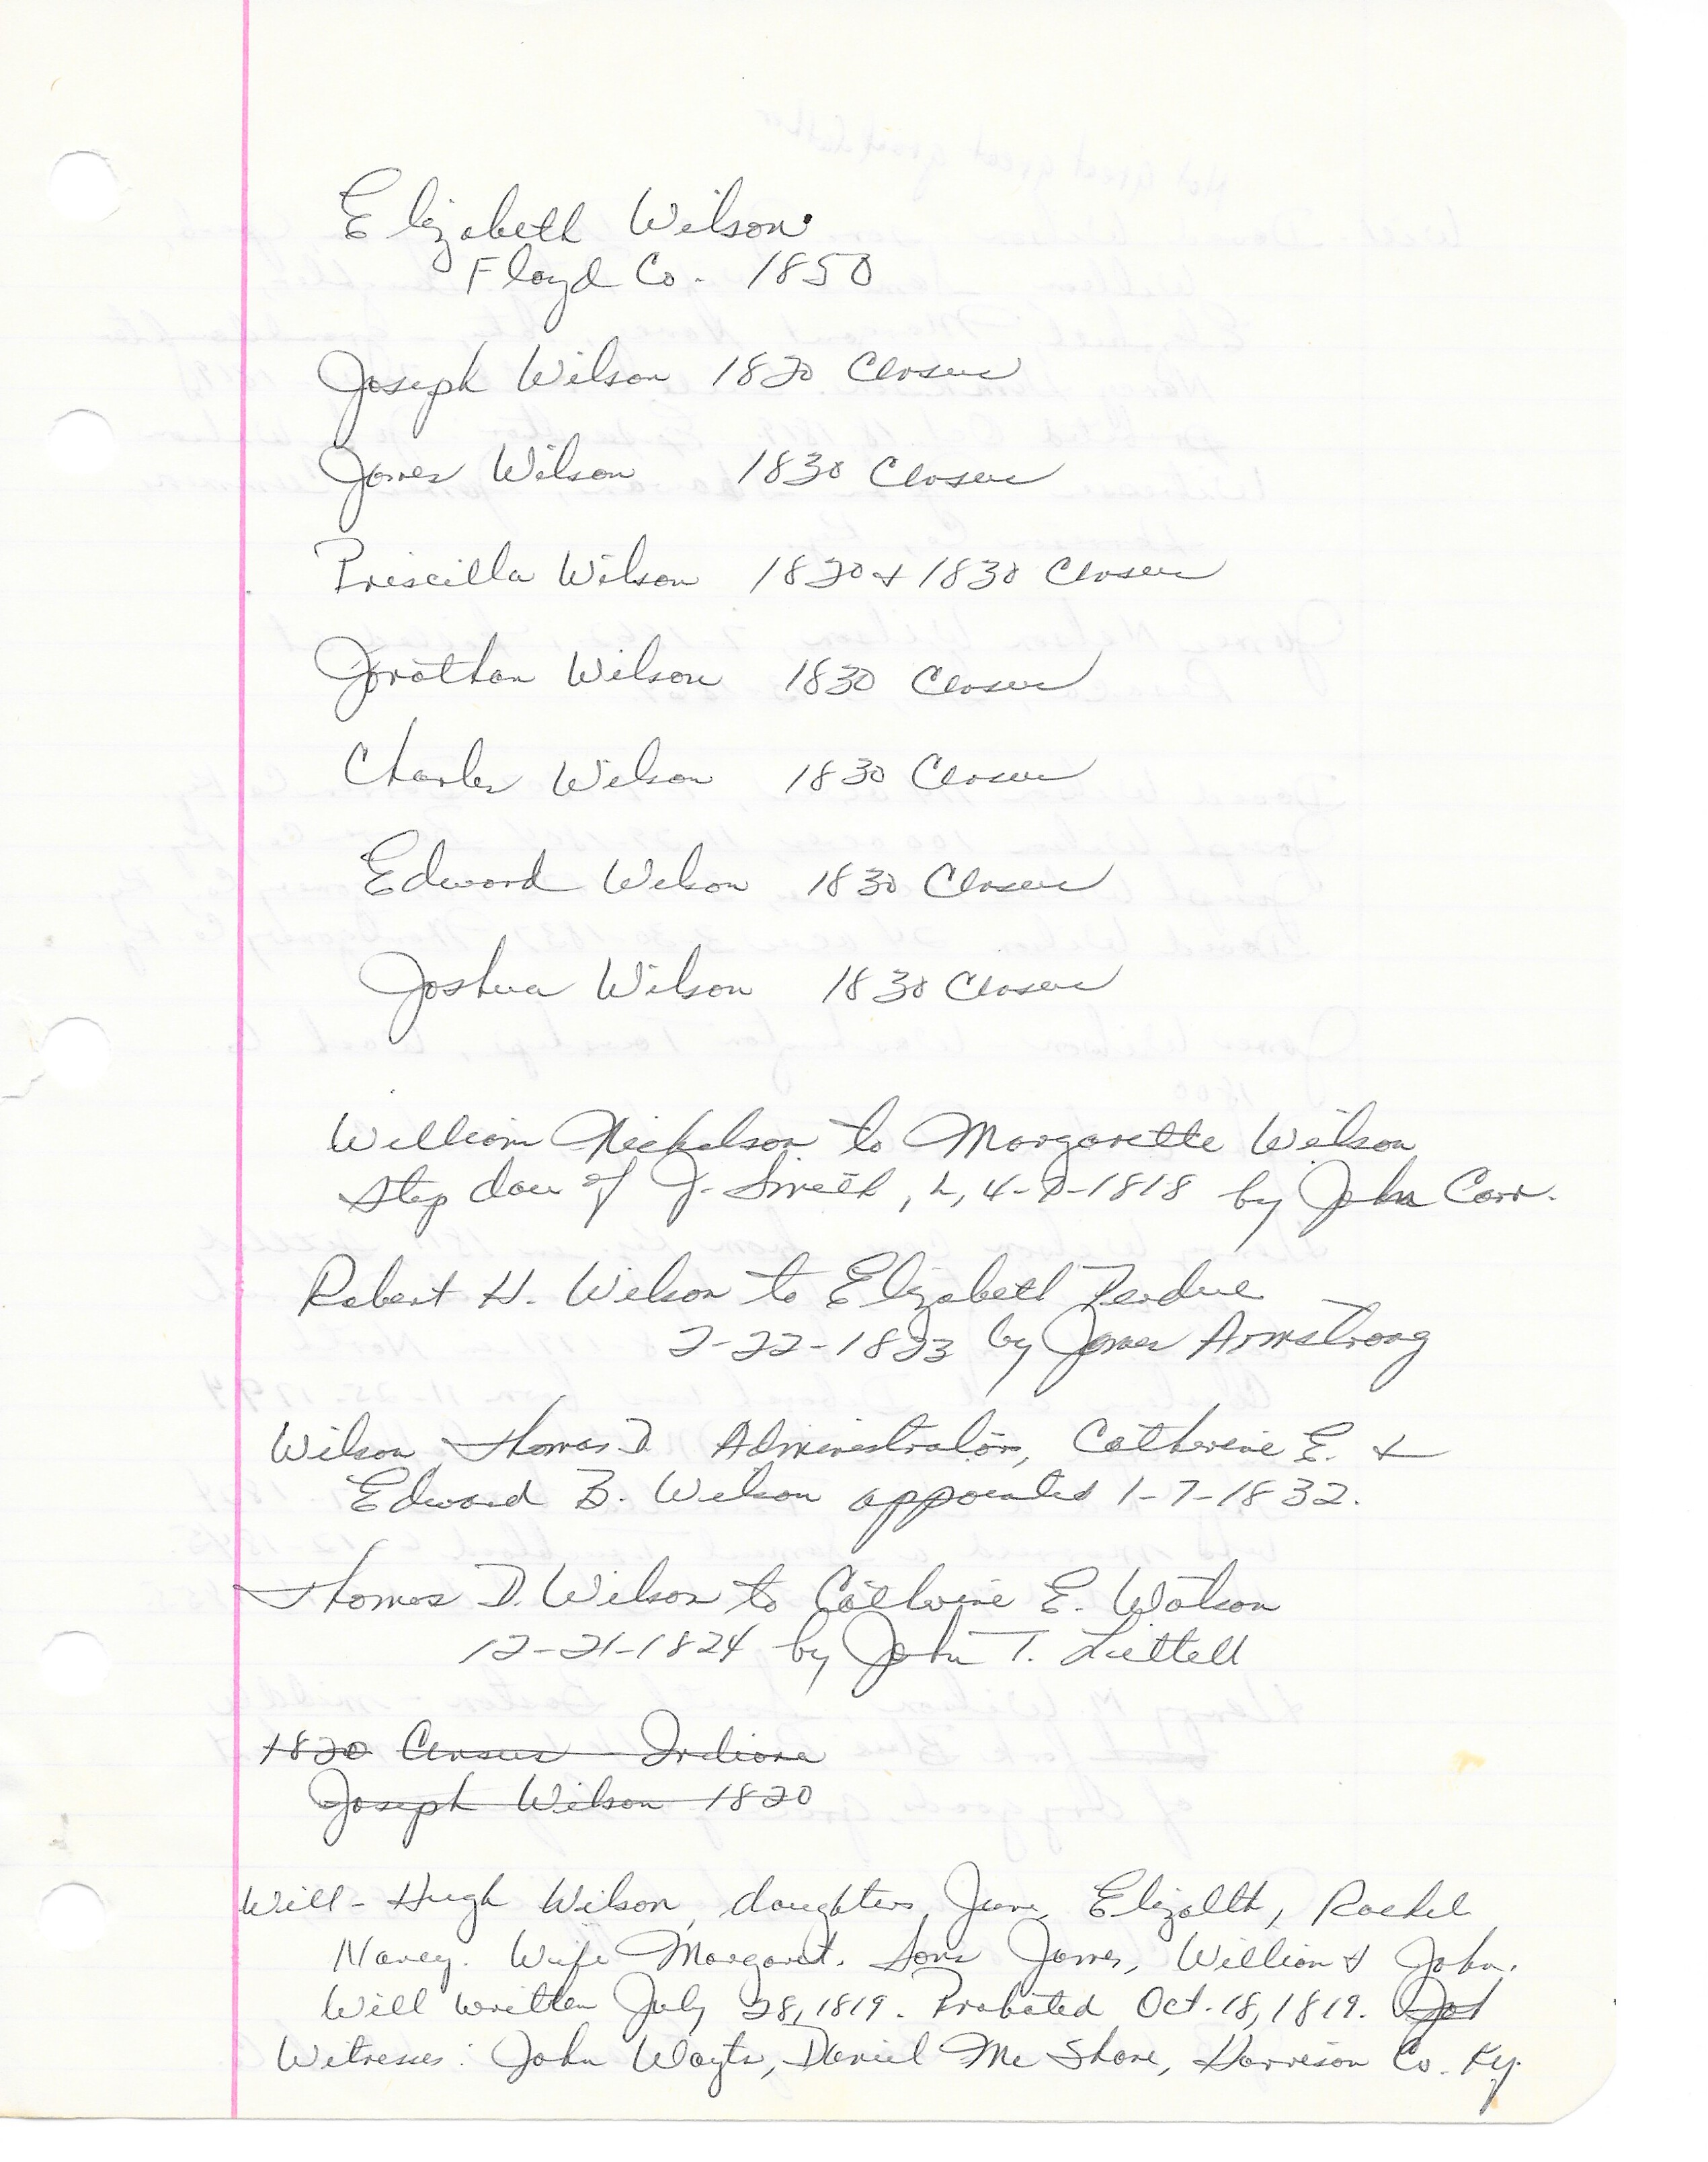 Elizabeth Wilson
Floyd Co. 1850
Joseph Wilson 1820 Census
James Wilson 1830 Census
Priscilla Wilson 1820 + 1830 Census
Jonathan Wilson 1830 Census
Charles Wilson 1830 Census
Edward Wilson 1830 Census
Joshua Wilson 1830 Census
William Nickelson to Margarette Wilson
step dau of J. Smith, L, 4-2-1818 by John Carr.
Robert H. Wilson to Elizabeth Perdue
2-22-1823 by James Armstrong
Wilson, Thomas D Administrators, Catherine E. +
Edward B. Wilson appointed 1-7-1832.
Thomas D. Wilson to Catherine E. Watson
12-21-1824 by John T. Littell
1820 Census - Indiana
Joseph Wilson 1820
Will - Hugh Wilson, daughters, Jane, Elizabeth, Rachel
Nancy. Wife Margaret. Sons James, William & John.
Will written July 28, 1819. Probated Oct. 18, 1819. Jos
Witnesses: John Wayts, Daniel Mc Shane, Harrison Co. Ky.